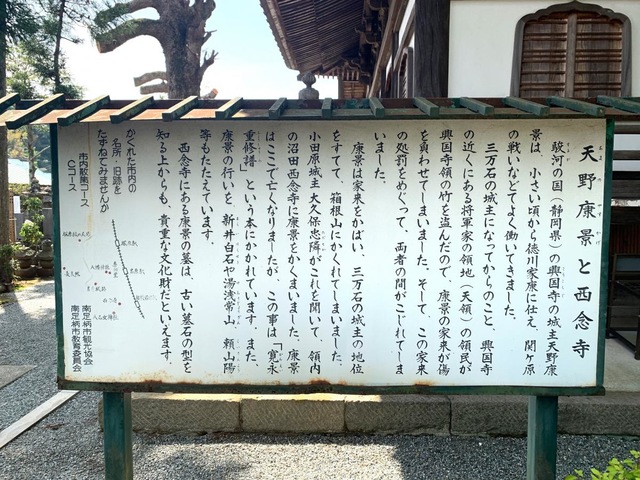 天野康景と西念寺
駿河の国(静岡県)の興国寺の城主天野康
景は、小さい頃から徳川家康に仕え、関ケ原
の戦いなどでよく働いてきました。
三万石の城主になってからのこと、興国寺
の近くにある将軍家の領地(天領)の領民が
興国寺領の竹を盗んだので、康景の家来が傷
を負わせてしまいました。そして、この家来
の処罰をめぐって、両者の間がこじれてしま
いました。
康景は家来をかばい、三万石の城主の地位
をすてて、箱根山にかくれてしまいました。
小田原城主大久保忠隣がこれを聞いて、領内
の沼田西念寺に康景をかくまいました。康景
はここで亡くなりましたが、この事は「寛永
重修譜」という本にかかれています。また、
康景の行いを、新井白石や湯浅常山、頼山陽
等もたたえています。
西念寺にある康景の墓は、古い墓石の型を
知る上からも、貴重な文化財といえます。
かくれた市内の
名所、旧跡を
たずねてみませんか
市内散策コース
Cコース
南足柄市観光協会
南足柄市教育委員会